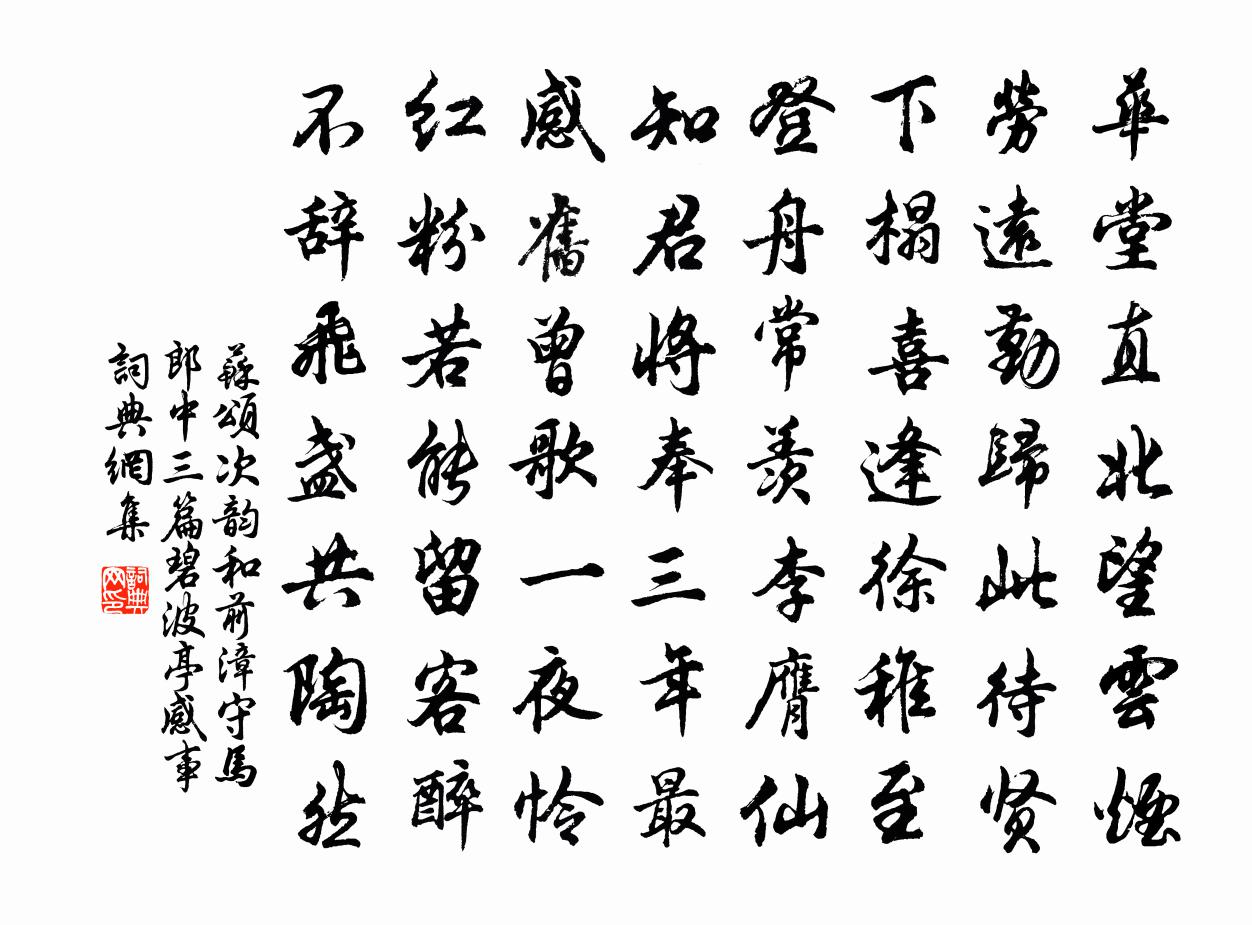 華堂直北望雲煙
勞遠勤歸此待贤
下榻喜逢徐稚至
登舟常羨李膺仙
知君将奉三年最
感舊曾歌一夜怜
红粉若能留客醉
不辞飛盏共陶然
蘇頌次韵和前漳守馬
郎中三篇碧波亭感事
詞典網集
詞典网印